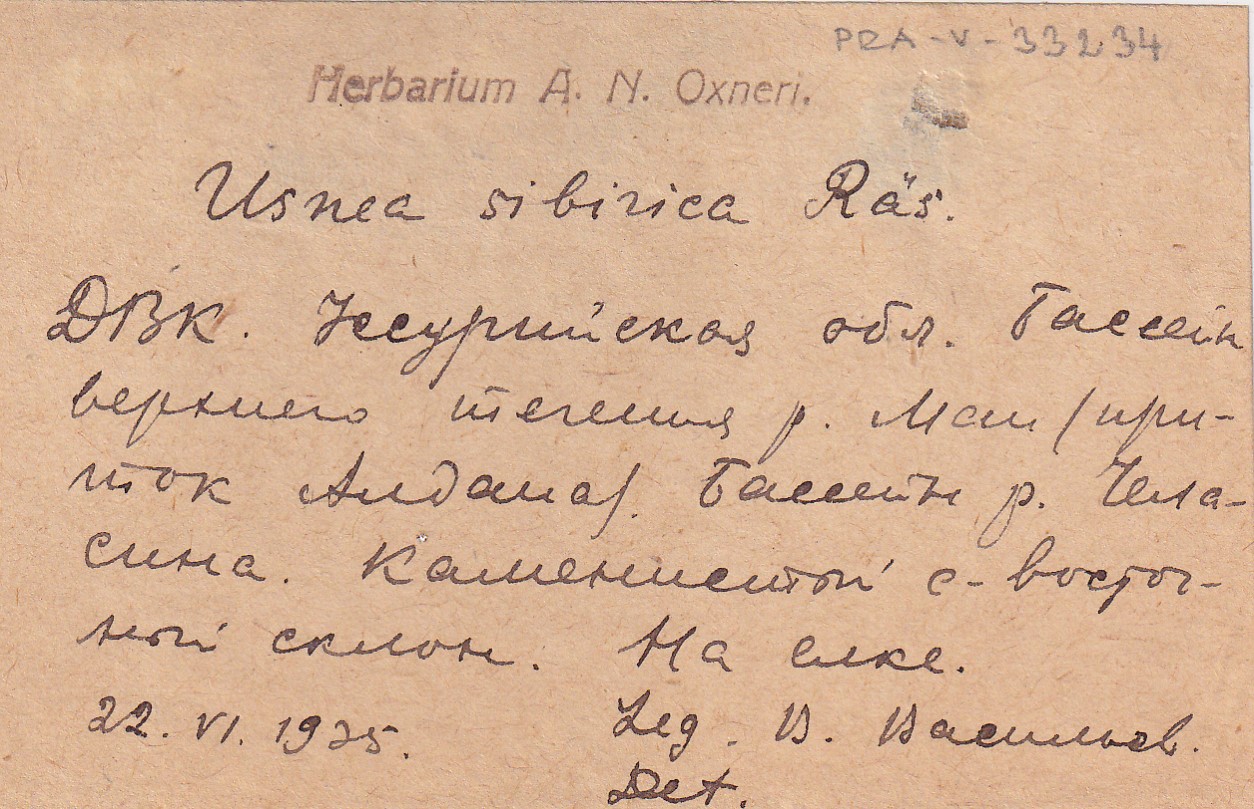 PRA-V-33234
Herbarium A. N. Oxneri.
Usnea sibirica Räs.
ДВК. Уссурийская обл. Бассейн
верхнего течения р. Маи /при-
ток Алдана/. Бассейн р. Чела-
сина. Каменистый с-восточ-
ный склон. На елке.
22. VI. 1935. Leg. В. Васильев.
Det.